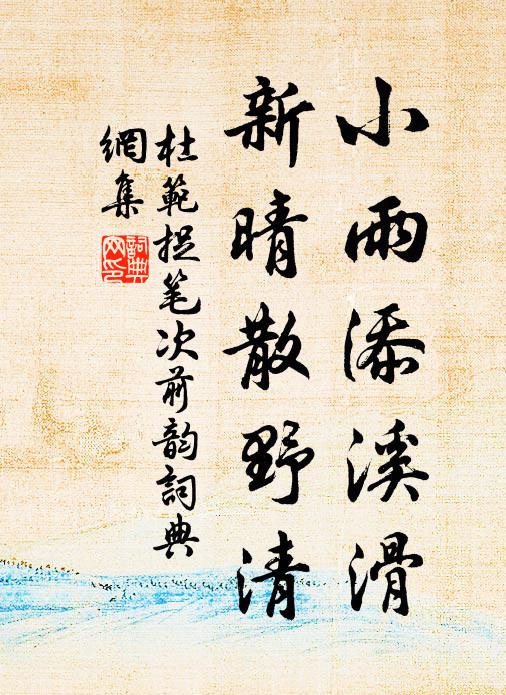 小雨添溪滑
新晴散野清
杜範捉笔次前韵詞典
網集
詞典
网印